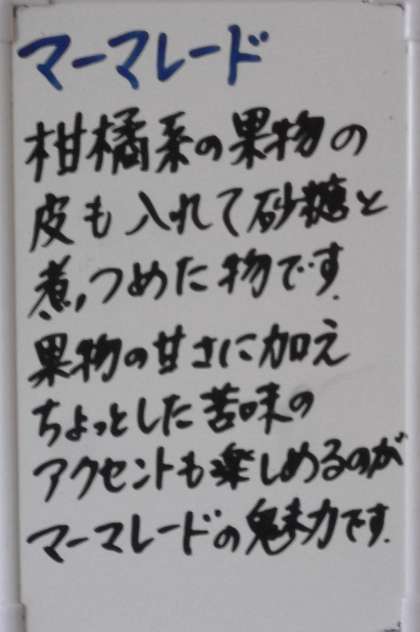 マーマレード
柑橘系の果物の
皮も入れて砂糖と
煮つめた物です.
果物の甘さに加え
ちょっとした苦味の
アクセントも楽しめるのが
マーマレードの魅力です.